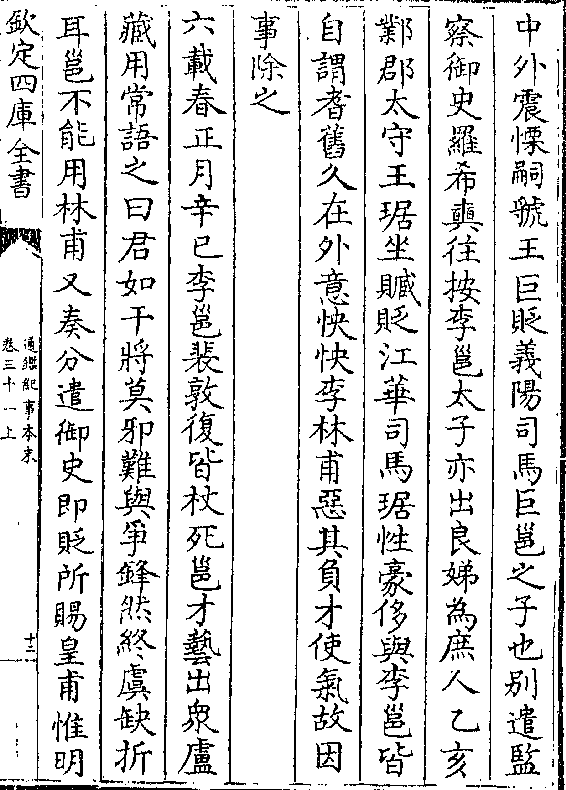 中外震慄嗣虢王巨貶義陽司馬巨邕之子也別遣監
察御史羅希奭往按李邕太子亦出良娣為庶人乙亥
鄴郡太守王琚坐贓貶江華司馬琚性豪侈與李邕皆
自謂耆舊久在外意怏怏李林甫惡其負才使氣故因
事除之
六載春正月辛巳李邕裴敦復皆杖死邕才藝出衆盧
藏用常語之曰君如干將莫邪難與爭鋒然終虞缺折
耳邕不能用林甫又奏分遣御史即貶所賜皇甫惟明
欽定四庫全書
通鑑紀事本末
卷三十一上
十三